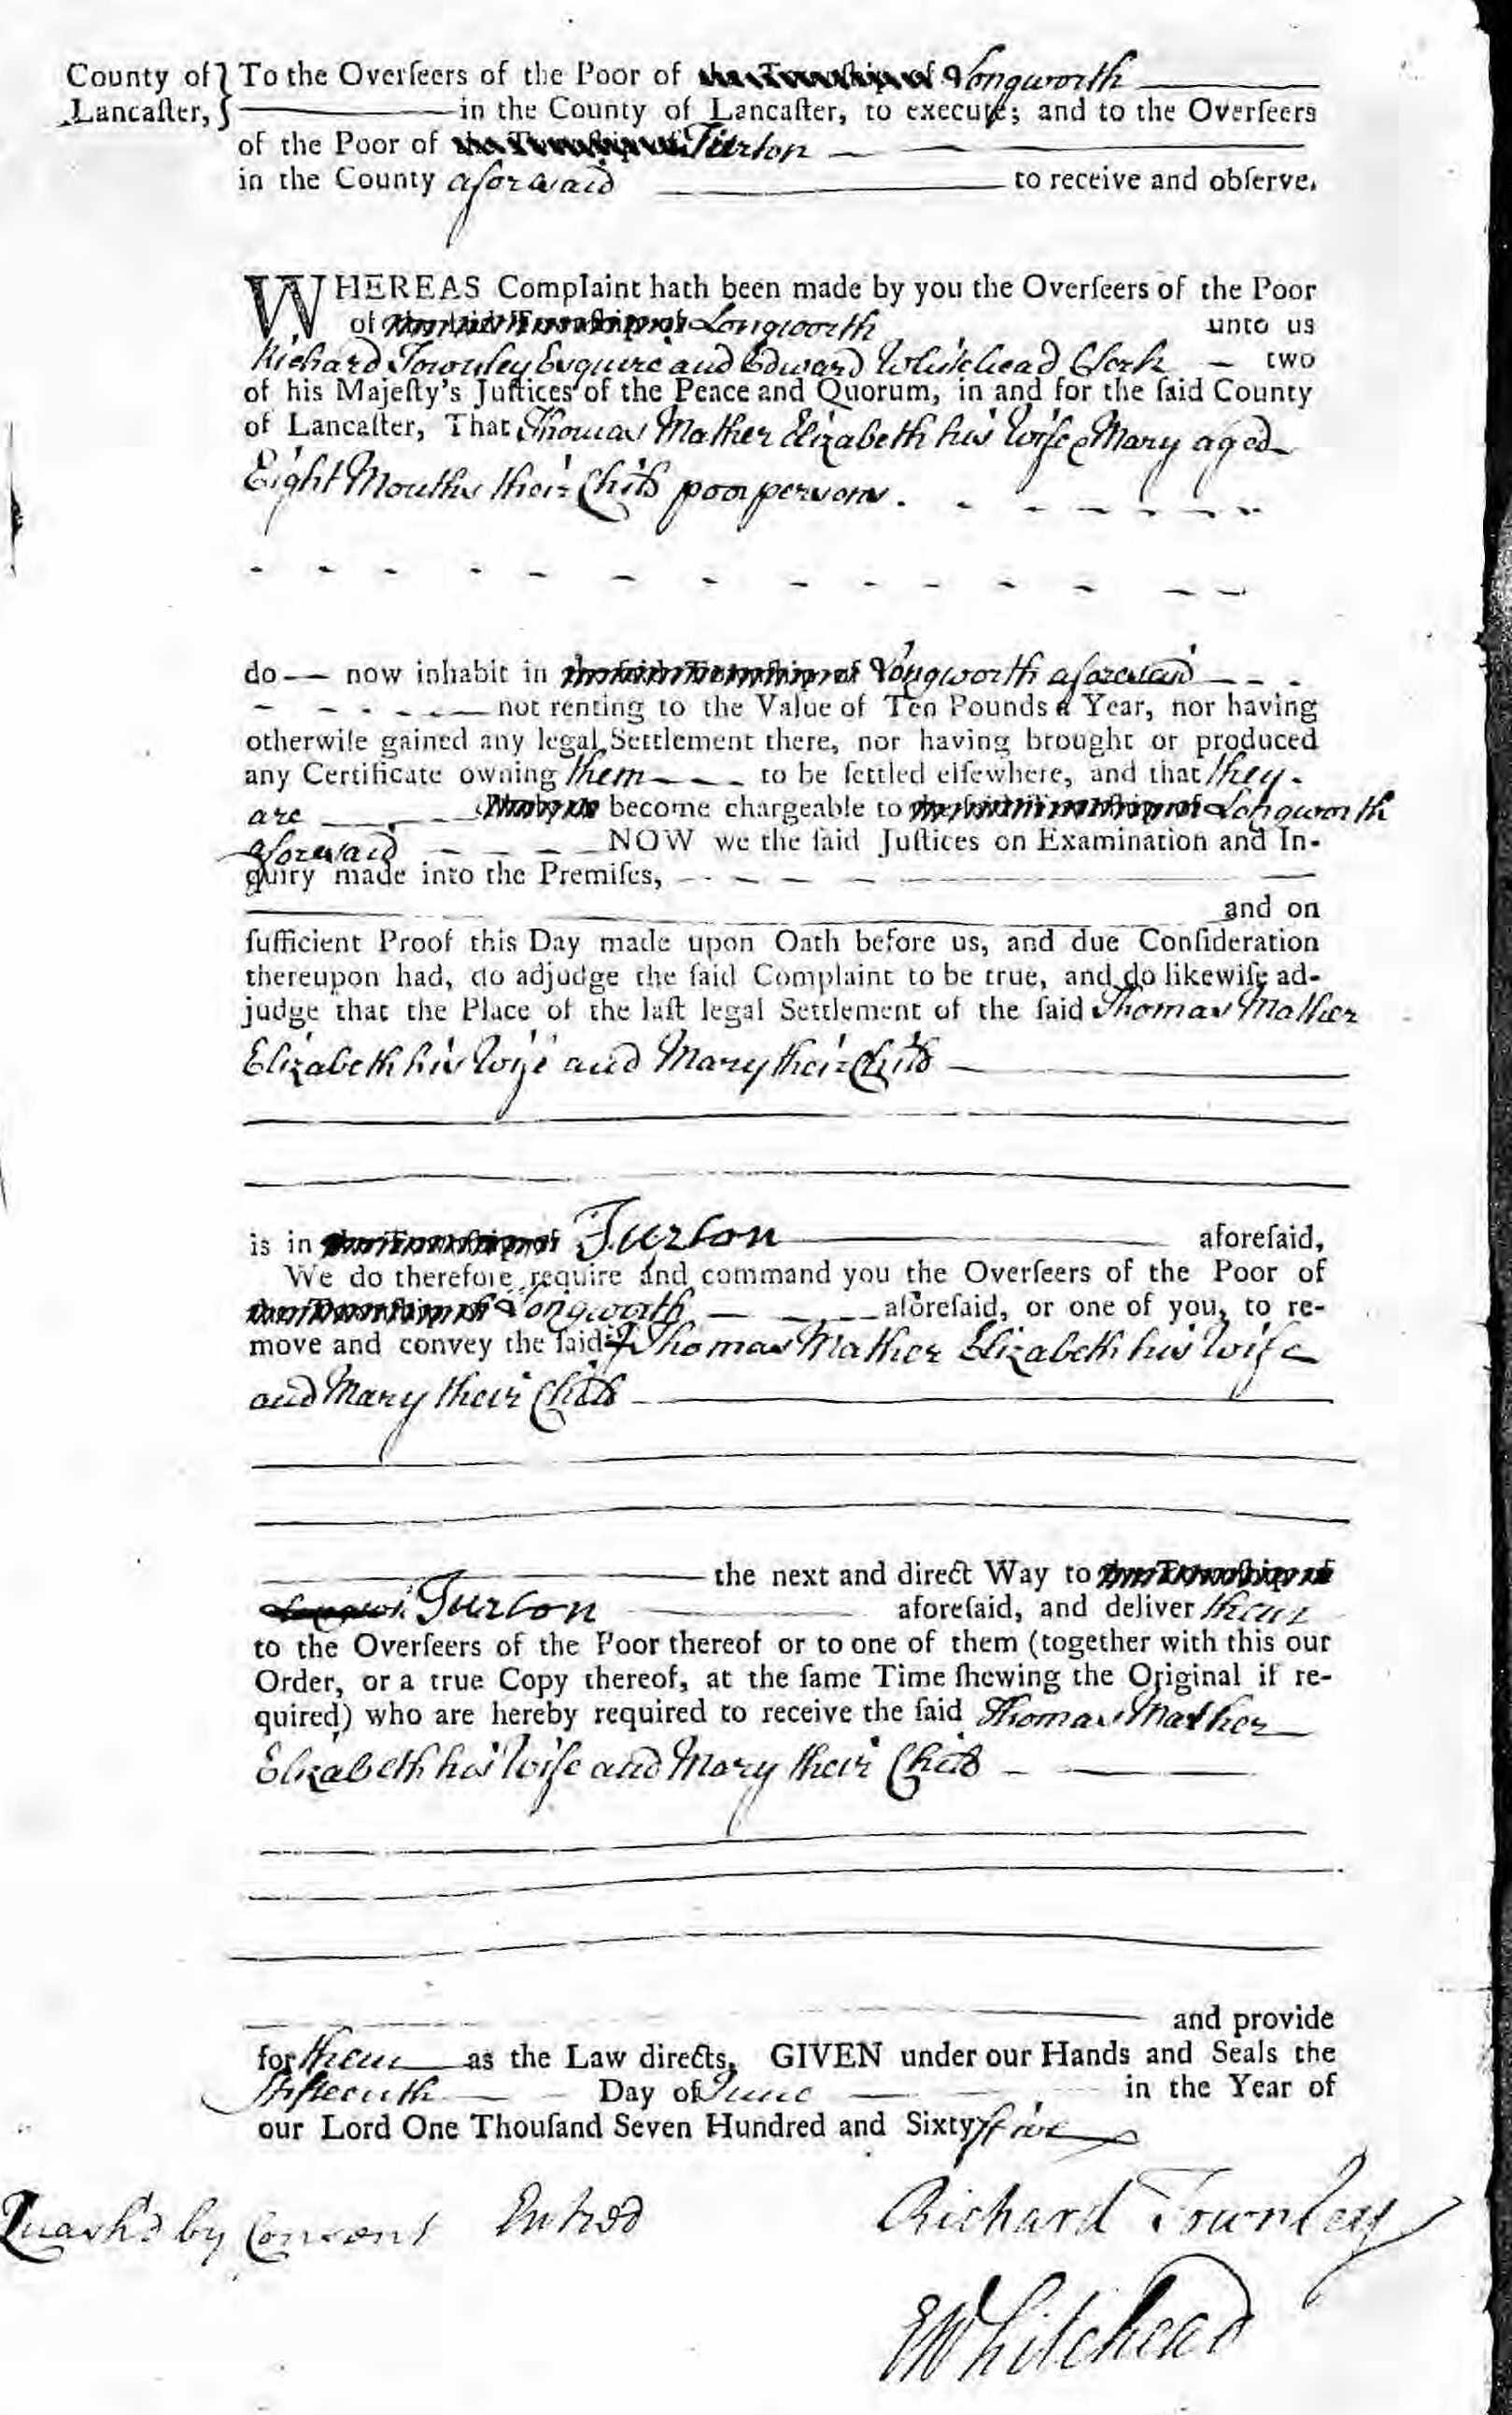 County of } To the Overſeers of the Poor of the Township of Longworth
Lancaſter, } in the County of Lancaſter, to execute; and to the Overſeers
of the Poor of the Township of Turton
in the County aforesaid to receive and obſerve.
WHEREAS Complaint hath been made by you the Overſeers of the Poor
of Longworth unto us
Richard Townley Esquire and Edward Whitehead Clerk two
of his Majeſty's Juſtices of the Peace and Quorum, in and for the ſaid County
of Lancaſter, That Thomas Mather Elizabeth his Wife & Mary aged
Eight Months their Child poor persons.
do now inhabit in Longworth aforesaid
not renting to the Value of Ten Pounds a Year, nor having
otherwiſe gained any legal Settlement there, nor having brought or produced
any Certificate owning them to be ſettled elſewhere, and that they
are become chargeable to Longworth
aforesaid NOW we the ſaid Juſtices on Examination and In-
quiry made into the Premiſes,
and on
ſufficient Proof this Day made upon Oath before us, and due Conſideration
thereupon had, do adjudge the ſaid Complaint to be true, and do likewiſe ad-
judge that the Place of the laſt legal Settlement of the ſaid Thomas Mather
Elizabeth his Wife and Mary their Child
is in Turton aforeſaid,
We do therefore require and command you the Overſeers of the Poor of
Longworth aforeſaid, or one of you, to re-
move and convey the ſaid Thomas Mather Elizabeth his Wife
and Mary their Child
the next and direct Way to
Turton aforeſaid, and deliver them
to the Overſeers of the Poor thereof or to one of them (together with this our
Order, or a true Copy thereof, at the ſame Time ſhewing the Original if re-
quired) who are hereby required to receive the ſaid Thomas Mather
Elizabeth his Wife and Mary their Child
and provide
for them as the Law directs, GIVEN under our Hands and Seals the
fifteenth Day of June in the Year of
our Lord One Thouſand Seven Hundred and Sixty ffive
Quash'd by Consent Entred Richard Townley
EWhitehead